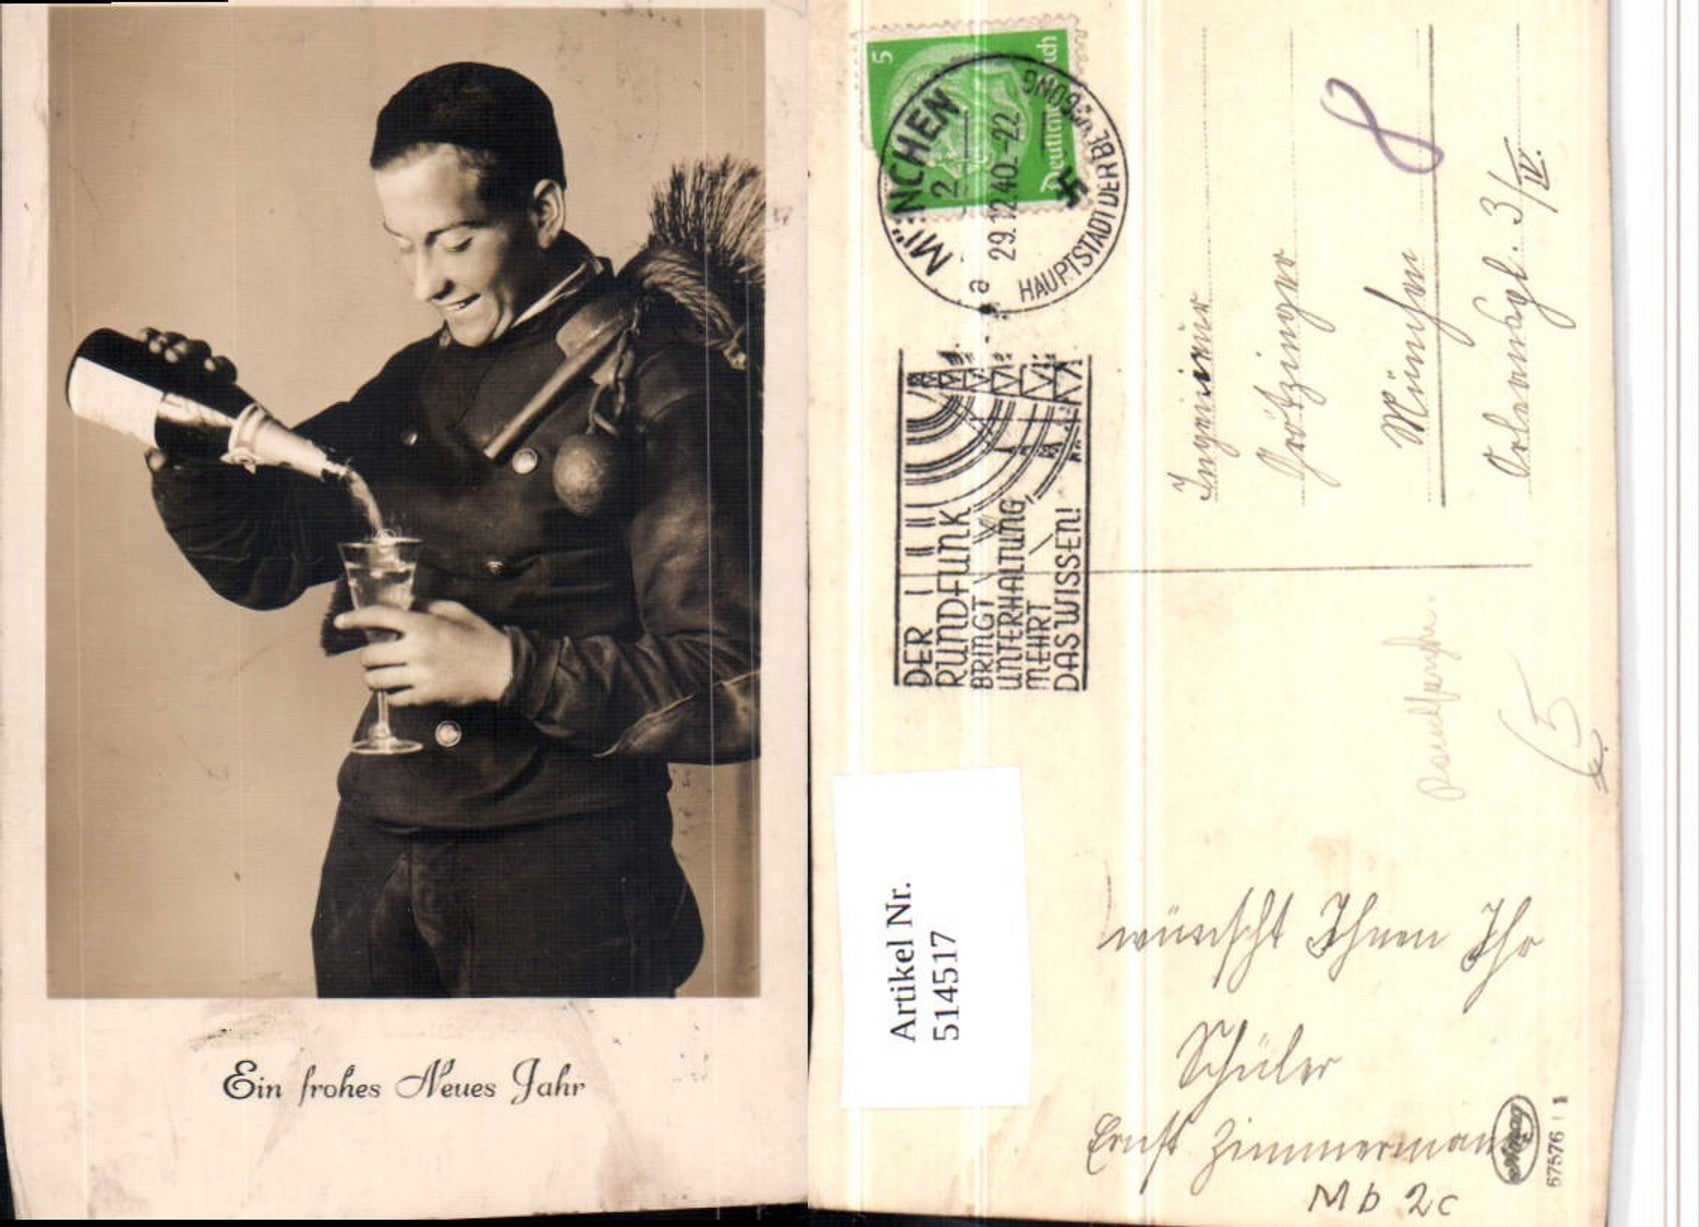 Ein frohes Neues Jahr
5
Deutsches Reich
MÜNCHEN
2
29.12.40.-22
a
HAUPTSTADT DER BEWEGUNG
DER
RUNDFUNK
BRINGT
UNTERHALTUNG
MEHRT
DAS WISSEN!
8
Ingenieur
München
3/IV.
5
Artikel Nr.
514517
wünscht Ihnen Ihr
Schüler
Ernst Zimmermann
Mb 2c
67576/1